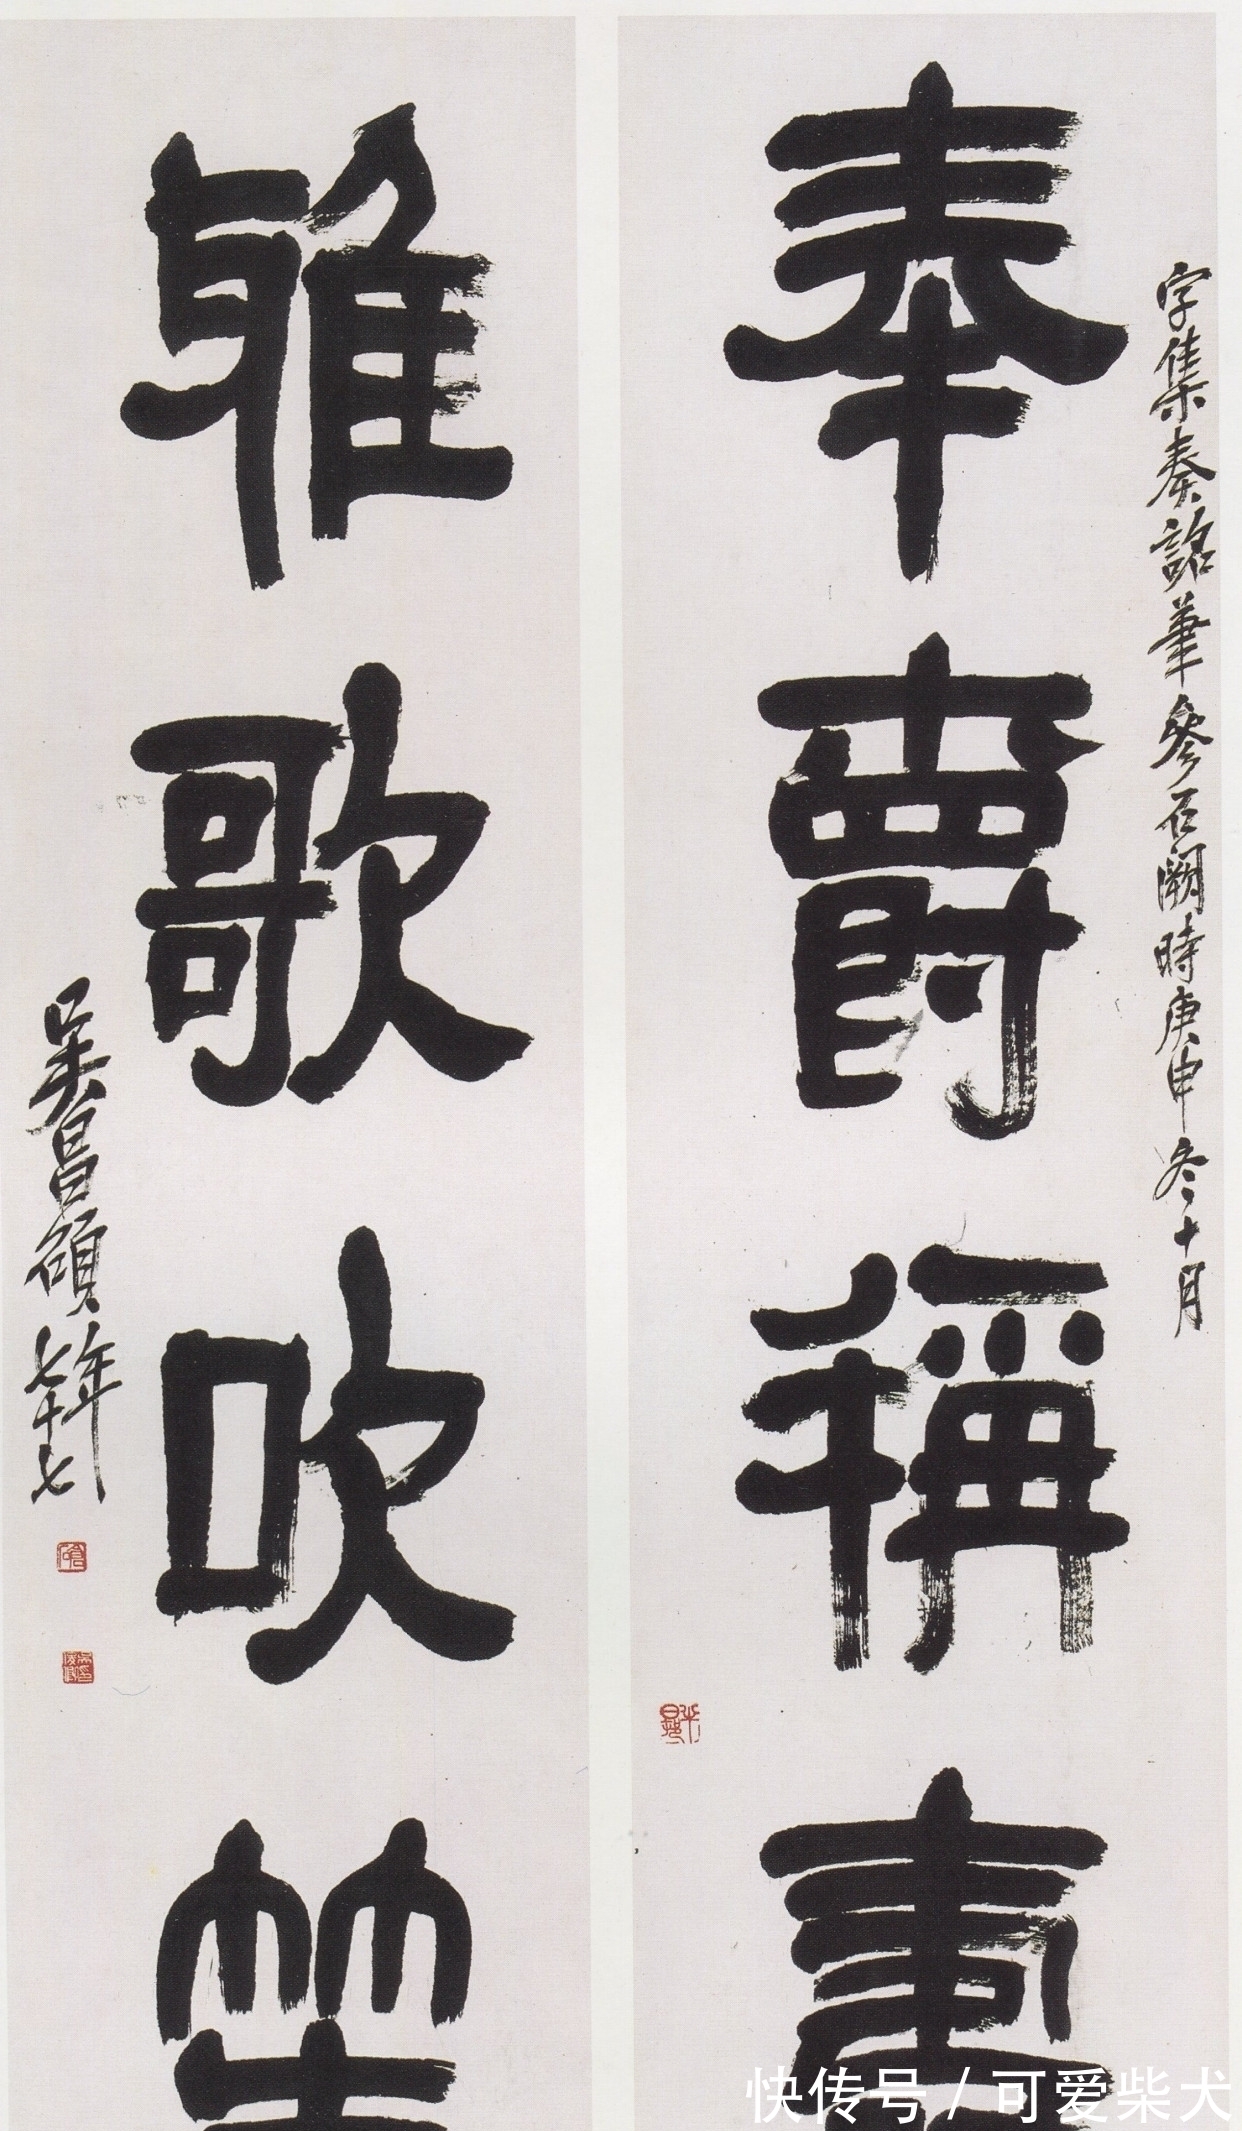 字集秦詔筆參石闕時庚申冬十月
奉爵稱壽
雅歌吹笙
吳昌碩年七十七
快传号 / 可爱柴犬